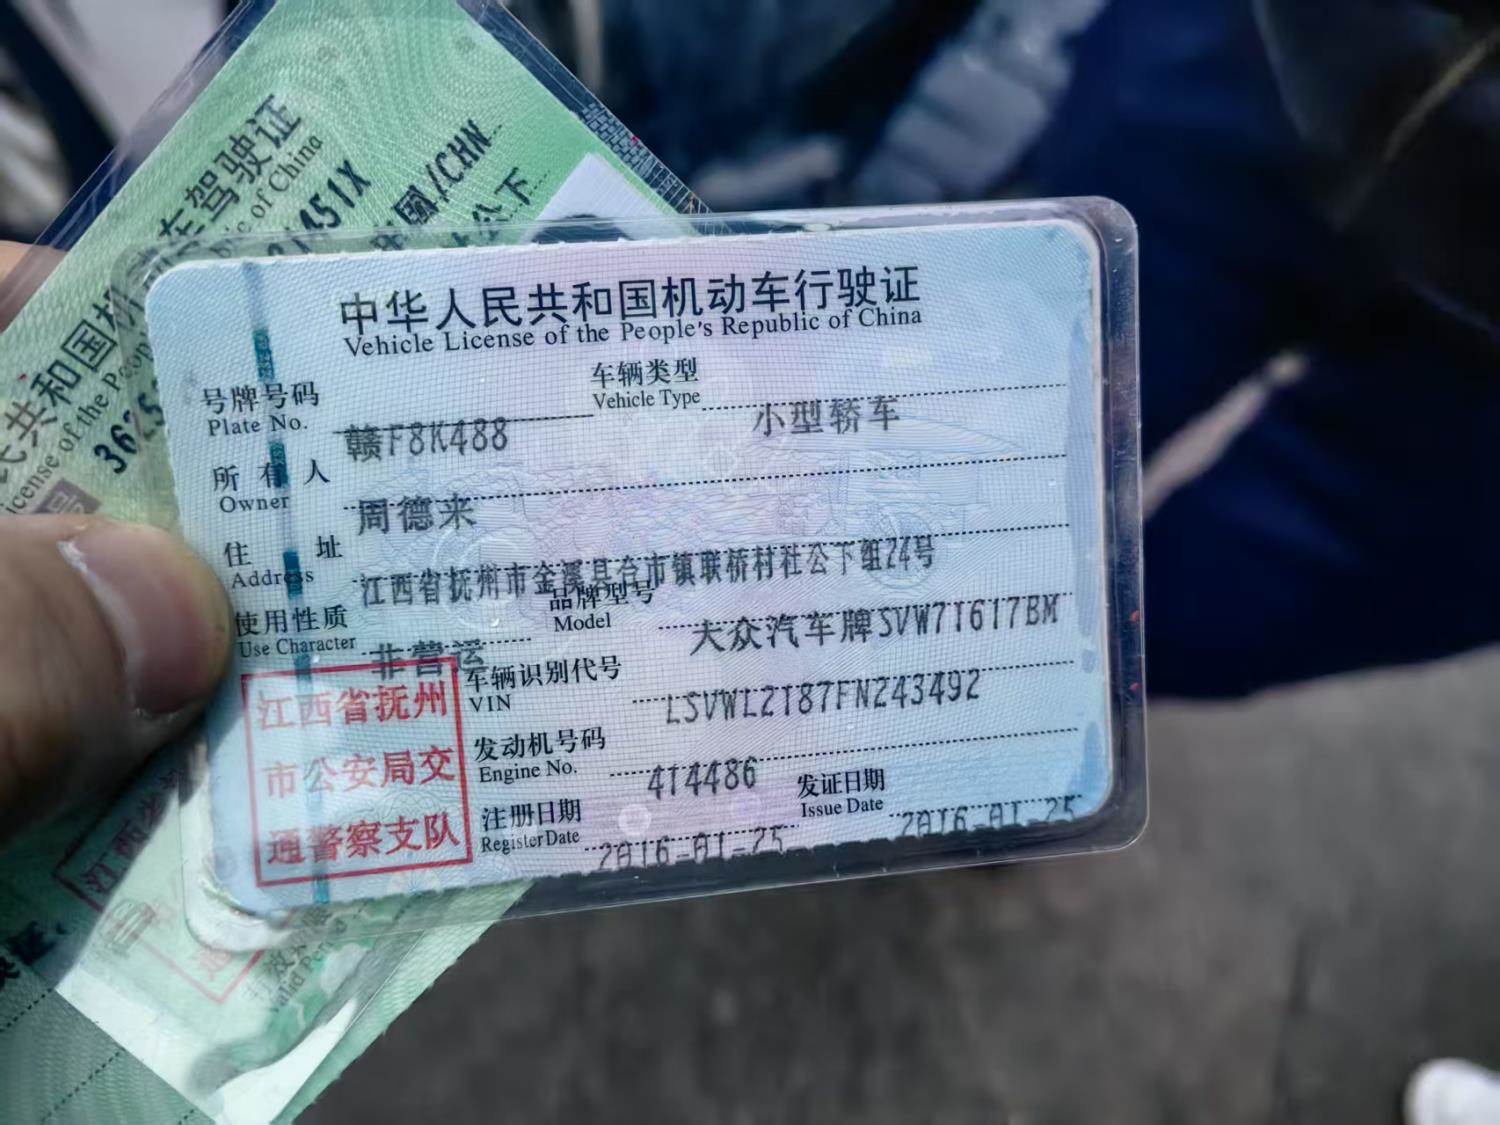 中华人民共和国机动车行驶证
Vehicle License of the People's Republic of China
号牌号码 赣F8K488 车辆类型 小型轿车
Plate No. Vehicle Type
所有人 周德来
Owner
住址 江西省抚州市金溪县合市镇联桥村社公下组24号
Address
使用性质 非营运 品牌型号 大众汽车牌SVW71617BM
Use Character Model
车辆识别代号 LSVWL2187FN243492
VIN
发动机号码 414486
Engine No.
注册日期 2016-01-25 发证日期 2016-01-25
Register Date Issue Date
江西省抚州
市公安局交
通警察支队
驾驶证
of China
1451X
国/CHN
公下
共和国机
icense of the People